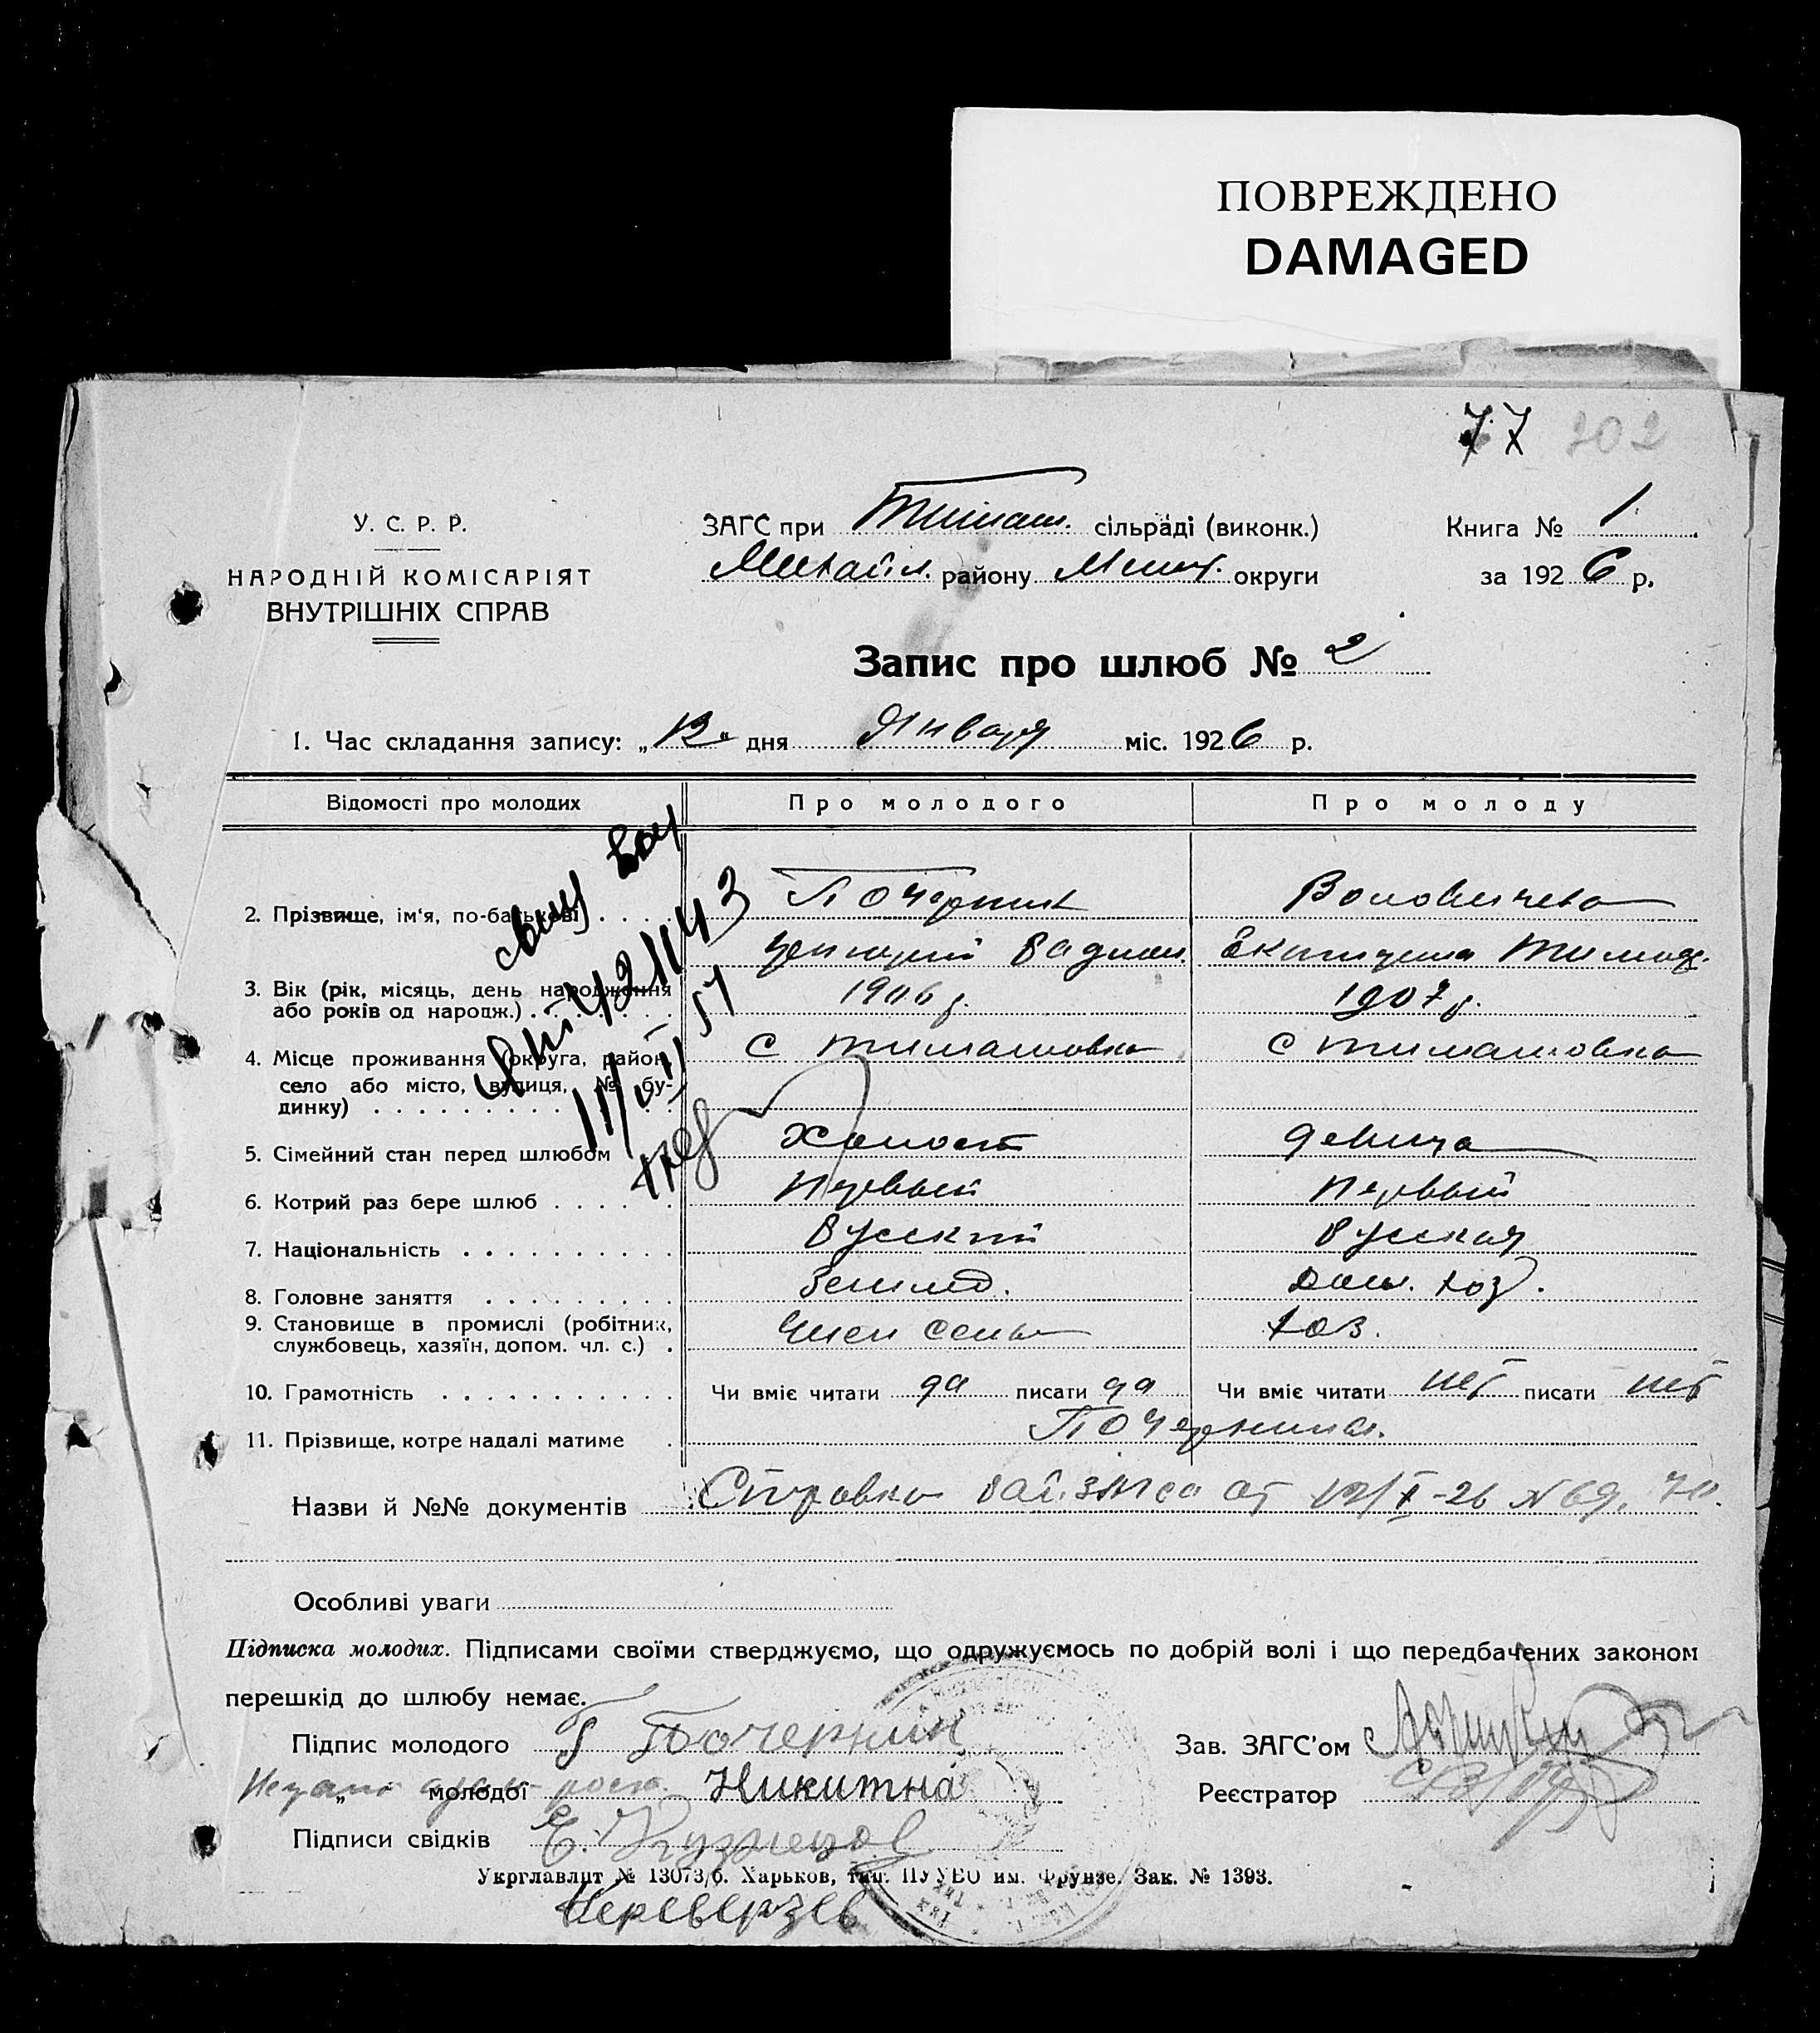 ПОВРЕЖДЕНО
DAMAGED
77 202
У. С. Р. Р.
НАРОДНІЙ КОМІСАРІЯТ
ВНУТРІШНІХ СПРАВ
ЗАГС при Тимаш. сільраді (виконк.)
Михайл. району Мелит. округи
Книга № 1
за 1926 р.
Запис про шлюб № 2
1. Час складання запису: „12“ дня Января міс. 1926 р.
Відомості про молодих Про молодого Про молоду
2. Прізвище, ім‘я, по-батькові . . . . Почернин
Екатерина Тимоф.
3. Вік (рік, місяць, день народження
або років од народж.) . . . . . . . 1906 г. 1907 г.
4. Місце проживання (округа, район,
село або місто, вулиця, № бу-
динку) . . . . . . . . . . с Тимашовка с Тимашовка
5. Сімейний стан перед шлюбом Холост девица
6. Котрий раз бере шлюб . . . . . Первый Первый
7. Національність . . . . . . . . . . Русский Русская
8. Головне заняття . . . . . . . . . Землед. Дом. хоз.
9. Становище в промислі (робітник,
службовець, хазяїн, допом. чл. с.) . Член семьи хоз.
10. Грамотність . . . . . . . . . . . Чи вміє читати да писати да Чи вміє читати нет писати нет
11. Прізвище, котре надалі матиме . Почернина.
Назви й №№ документів Справка Рай.загса от 12/I-26 № 69, 70.
Особливі уваги
Підписка молодих. Підписами своїми стверджуємо, що одружуємось по добрій волі і що передбачених законом
перешкід до шлюбу немає.
Підпис молодого Почернин
Зав. ЗАГС’ом
„ молодої Никитна
Реєстратор
Підписи свідків Е. Кузнецов
Укрглавлит № 13073/б. Харьков, тип. ПУУВО им. Фрунзе. Зак. № 1393.
Переверзев